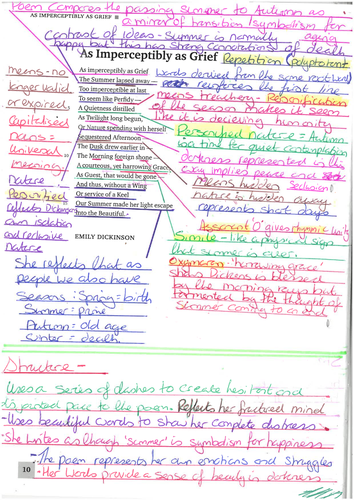 Poem Compares the passing summer to Autumn as
AS IMPERCEPTIBLY AS GRIEF
a mirror of transition/symbolism for
contrast of ideas - Summer is normally aging
happy but this has strong connotations of death
As Imperceptibly as Grief
Repetition (Polyptoton)
As imperceptibly as Grief
The Summer lapsed away —
Too imperceptible at last
To seem like Perfidy —
A Quietness distilled
As Twilight long begun,
Or Nature spending with herself
Sequestered Afternoon —
The Dusk drew earlier in —
The Morning foreign shone —
A courteous, yet harrowing Grace,
As Guest, that would be gone —
And thus, without a Wing
Or service of a Keel
Our Summer made her light escape
Into the Beautiful. -
EMILY DICKINSON
means - no
longer valid
or expired
Capitalised
nouns =
universal
meaning
Nature
Personified
reflects Dickinson's
own isolation
and reclusive
nature
words derived from the same root word
reinforces the first line
means treachery - Personification
of the season makes it seem
like it is deceiving humanity
Personified nature = Autumn
is a time for quiet contemplation
darkness represented in the
sky implies peace
Means hidden Seclusion
nature is hidden away
represents short days
Assonant 'O' gives rhymic unity
Simile - like a physical sign
that summer is over.
Oxymoron - 'harrowing grace'
shows Dickens is blessed
by the morning rays but
tormented by the thought of
Summer coming to an end
She reflects that as
people we also have
Seasons: Spring = birth
Summer = prime
Autumn = old age
winter = death
Structure -
Uses a series of dashes to create hesitant and
disjointed pace to the poem. Reflects her fractured mind
- Uses beautiful words to show her complete distress
- She writes as though 'summer' is symbolism for happiness
- The poem represents her own emotions and struggles
- Her words provide a sense of beauty in darkness
10